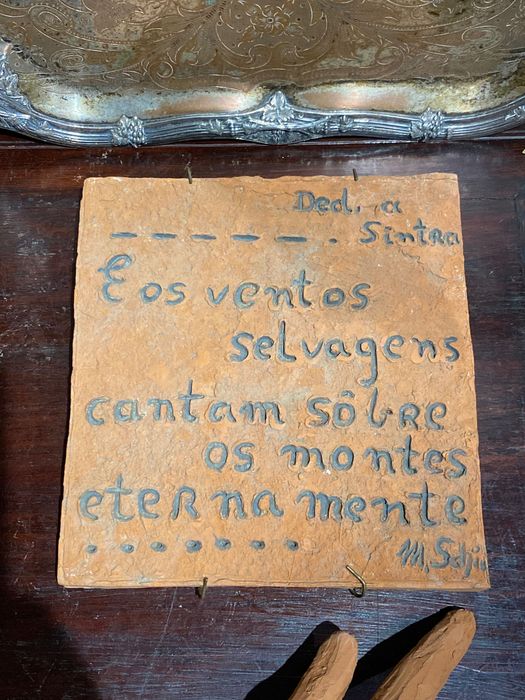 Ded. a
– – – – – . Sintra
E os ventos
selvagens
cantam sôbre
os montes
eternamente
. . . . . . .
M.